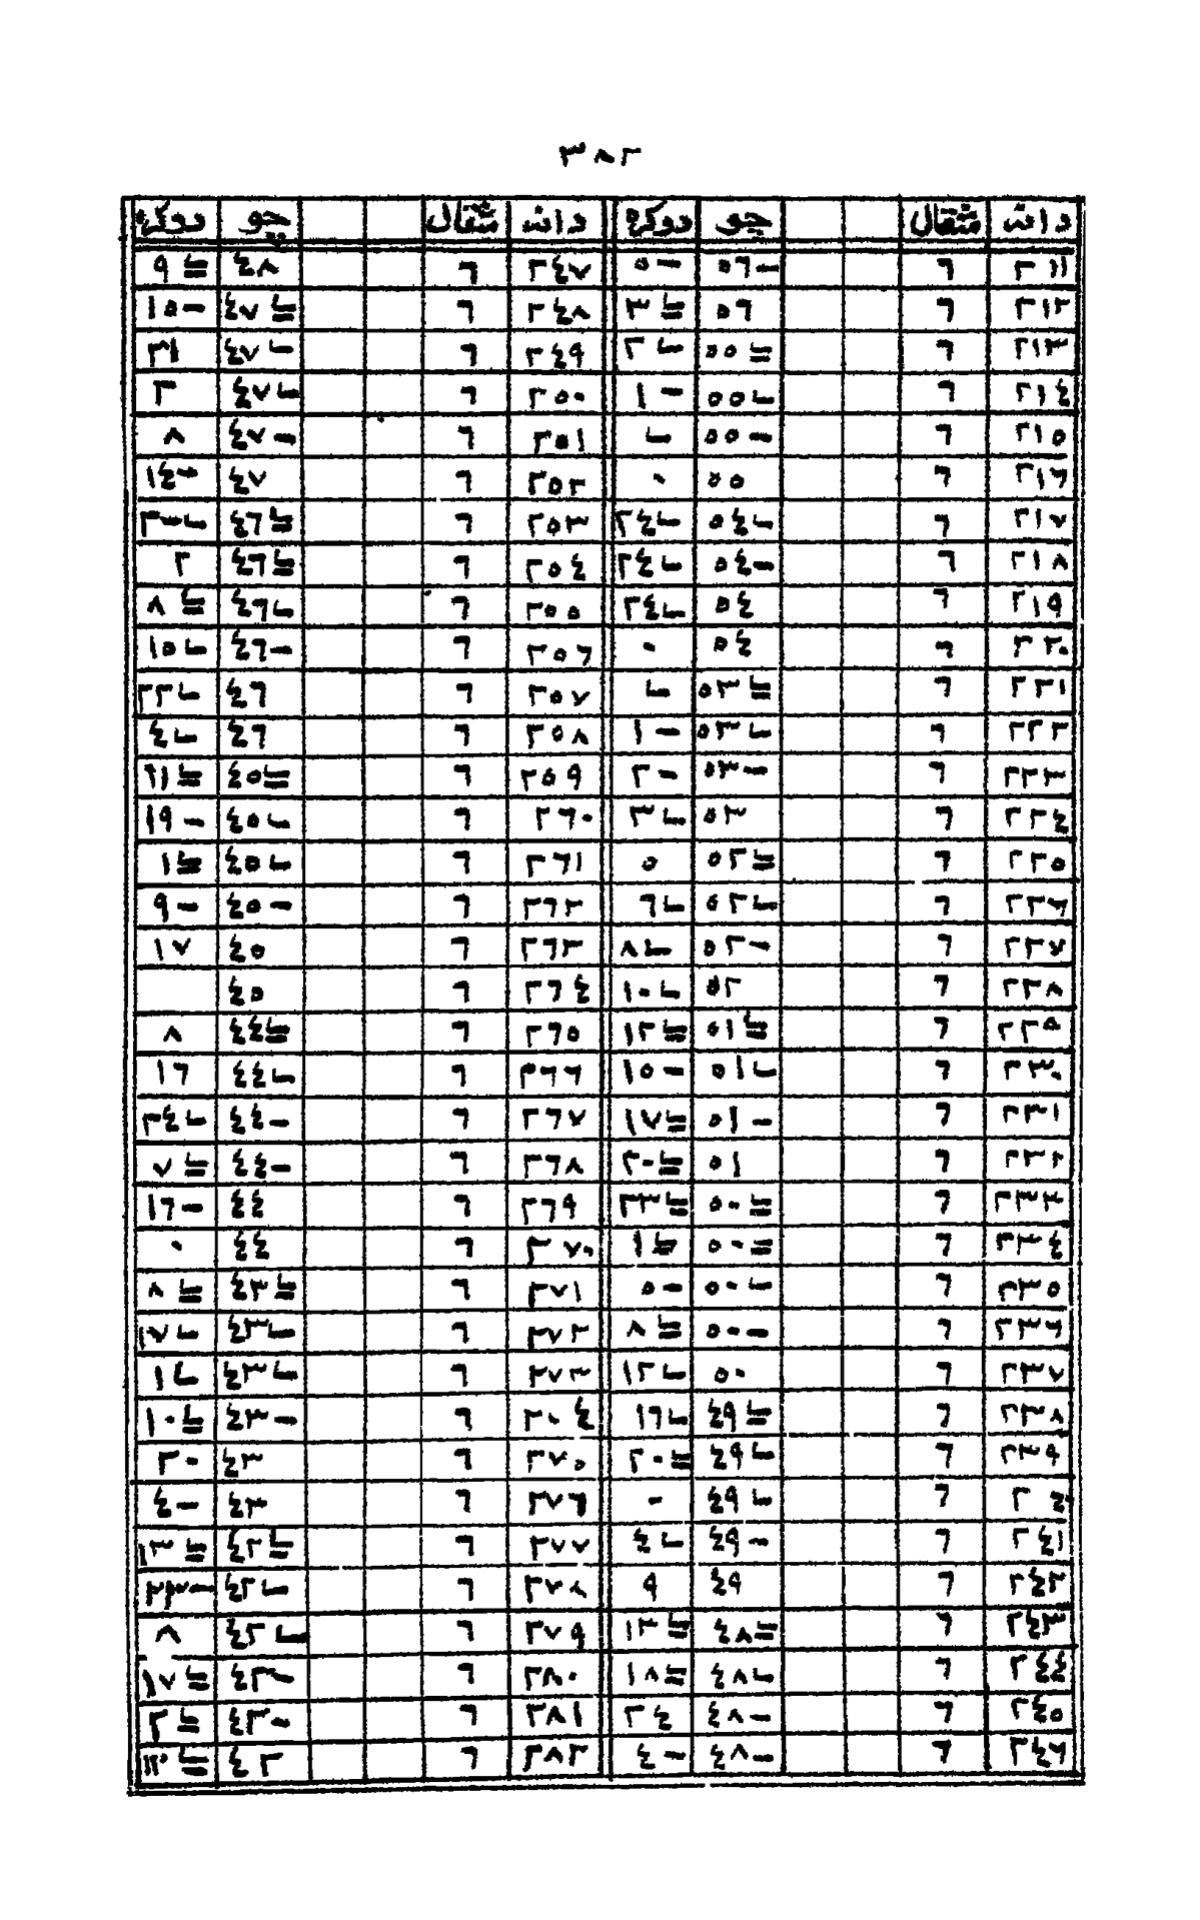 ٣٨٢
دانه مثقال جو دوكره دانه مثقال جو دوكره
٢١١ ٦ ٥٦- ٥- ٢٤٧ ٦ ٤٨ ٩≒
٢١٢ ٦ ٥٦ ٣≒ ٢٤٨ ٦ ٤٧≒ ١٥-
٢١٣ ٦ ٥٥≒ ٢ـا ٢٤٩ ٦ ٤٧ـا ٢١
٢١٤ ٦ ٥٥ـا ١- ٢٥٠ ٦ ٤٧ـا ٢
٢١٥ ٦ ٥٥- ـا ٢٥١ ٦ ٤٧- ٨
٢١٦ ٦ ٥٥ ٠ ٢٥٢ ٦ ٤٧ ١٤-
٢١٧ ٦ ٥٤ـا ٢٤ـا ٢٥٣ ٦ ٤٦≒ ٢٠ـا
٢١٨ ٦ ٥٤- ٢٤ـا ٢٥٤ ٦ ٤٦≒ ٢
٢١٩ ٦ ٥٤ ٢٤ـا ٢٥٥ ٦ ٤٦ـا ٨≒
٢٢٠ ٦ ٥٤ ٠ ٢٥٦ ٦ ٤٦- ١٥ـا
٢٢١ ٦ ٥٣≒ ـا ٢٥٧ ٦ ٤٦ ٢٢ـا
٢٢٢ ٦ ٥٣ـا ١- ٢٥٨ ٦ ٤٦ ٤ـا
٢٢٣ ٦ ٥٣- ٢- ٢٥٩ ٦ ٤٥≒ ١١≒
٢٢٤ ٦ ٥٣ ٣ـا ٢٦٠ ٦ ٤٥ـا ١٩-
٢٢٥ ٦ ٥٢≒ ٥ ٢٦١ ٦ ٤٥ـا ١≒
٢٢٦ ٦ ٥٢ـا ٦ـا ٢٦٢ ٦ ٤٥- ٩-
٢٢٧ ٦ ٥٢- ٨ـا ٢٦٣ ٦ ٤٥ ١٧
٢٢٨ ٦ ٥٢ ١٠ـا ٢٦٤ ٦ ٤٥
٢٢٥ ٦ ٥١≒ ١٢≒ ٢٦٥ ٦ ٤٤≒ ٨
٢٣٠ ٦ ٥١ـا ١٥- ٢٦٦ ٦ ٤٤ـا ١٦
٢٣١ ٦ ٥١- ١٧≒ ٢٦٧ ٦ ٤٤- ٢٤ـا
٢٣٢ ٦ ٥١ ٢٠≒ ٢٦٨ ٦ ٤٤- ٧≒
٢٣٣ ٦ ٥٠≒ ٢٣≒ ٢٦٩ ٦ ٤٤ ١٦-
٢٣٤ ٦ ٥٠≒ ١≒ ٢٧٠ ٦ ٤٤ ٠
٢٣٥ ٦ ٥٠ـا ٥- ٢٧١ ٦ ٤٣≒ ٨≒
٢٣٦ ٦ ٥٠- ٨≒ ٢٧٢ ٦ ٤٣ـا ١٧ـا
٢٣٧ ٦ ٥٠ ١٢ـا ٢٧٣ ٦ ٤٣ـا ١ـا
٢٣٨ ٦ ٤٩≒ ١٦ـا ٢٠٤ ٦ ٤٣- ١٠≒
٢٣٩ ٦ ٤٩ـا ٢٠≒ ٢٧٥ ٦ ٤٣ ٢٠
٢٤٠ ٦ ٤٩ـا - ٢٧٦ ٦ ٤٣ ٤-
٢٤١ ٦ ٤٩- ٤ـا ٢٧٧ ٦ ٤٢≒ ١٣≒
٢٤٢ ٦ ٤٩ ٩ ٢٧٨ ٦ ٤٢ـا ٢٣-
٢٤٣ ٦ ٤٨≒ ١٣≒ ٢٧٩ ٦ ٤٢ـا ٨
٢٤٤ ٦ ٤٨ـا ١٨≒ ٢٨٠ ٦ ٤٢- ١٧≒
٢٤٥ ٦ ٤٨- ٢٤ ٢٨١ ٦ ٤٢- ٢≒
٢٤٦ ٦ ٤٨- ٤- ٢٨٢ ٦ ٤٢ ١٢≒